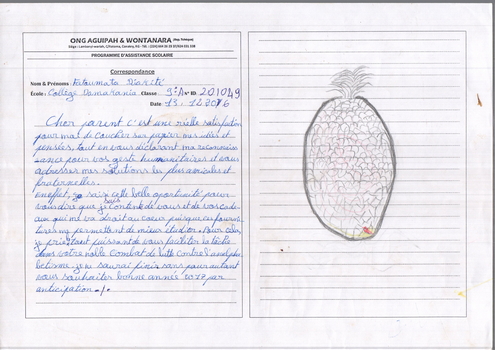 ONG AGUIPAH & WONTANARA
PROGRAMME D'ASSISTANCE SCOLAIRE
Correspondance
Nom & Prénoms : Fatoumata Diakité
École: Collège Damakania Classe : 9ᵉA N° ID: 201049
Date : 13.12.2016
Cher parent c'est une réelle satisfaction
pour moi de coucher sur papier mes idées et
pensées, tout en vous déclarant ma reconnais
sance pour vos geste humanitaires et vous
adresse mes salutions les plus amicales et
fraternelles.
En effet, je saisis cette belle opportunité pour
vous dire que je suis content de vous et de vos cade-
aux qui me va droit au coeur puisque ces fourni
tures me permettent de mieux étudier. Pour cela,
je prie tout puissant de vous faciliter la tâche
dans votre noble combat de lutte contre l'analpha
bétisme. je ne saurai finir sans pour autant
vous souhaiter bonne année 2017 par
anticipation